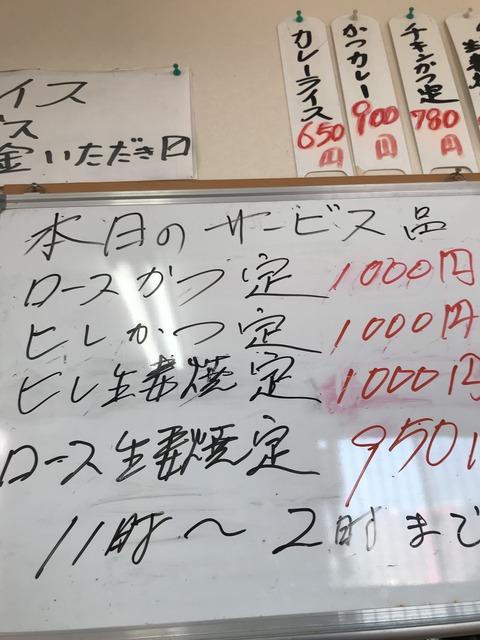 イス
ス
金いただき
カレーライス
650円
かつカレー
900円
チキンかつ定
780円
本日のサービス品
ロースかつ定 1000円
ヒレかつ定 1000円
ヒレ生姜焼定 1000円
ロース生姜焼定 950
11時〜2時まで